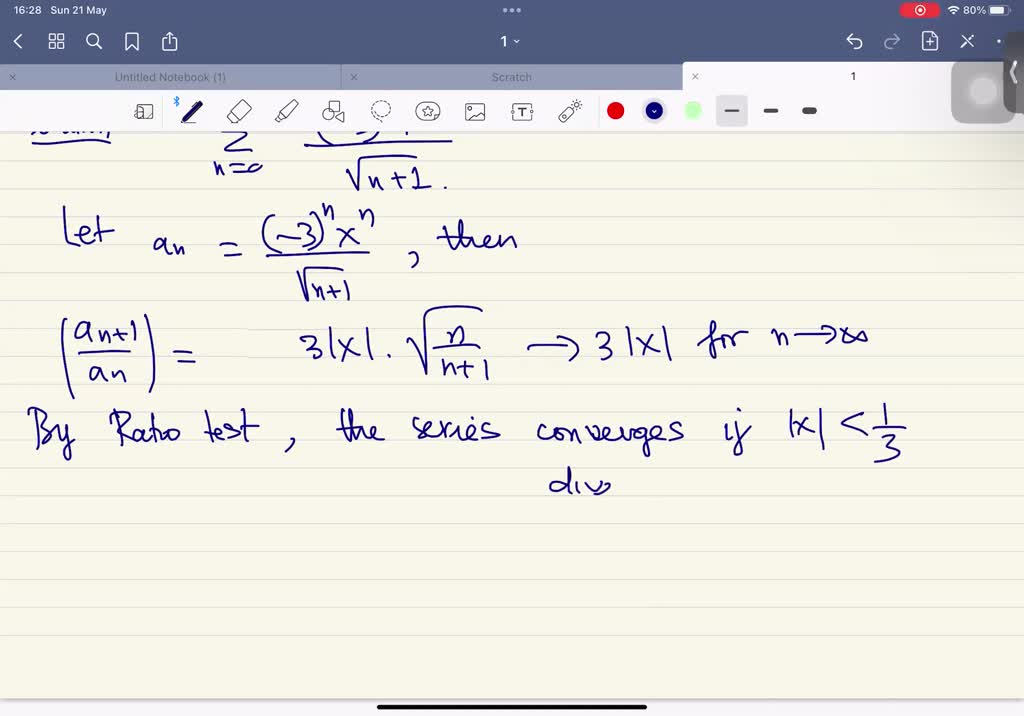 16:28 Sun 21 May
80%
1
Untitled Notebook (1)
Scratch
1
∑ n=0
√n+1.
Let an = (-3)^n x^n / √n+1, then
|an+1 / an| = 3|x|. √(n / n+1) → 3|x| for n→∞
By Ratio test, the series converges if |x| < 1/3
div